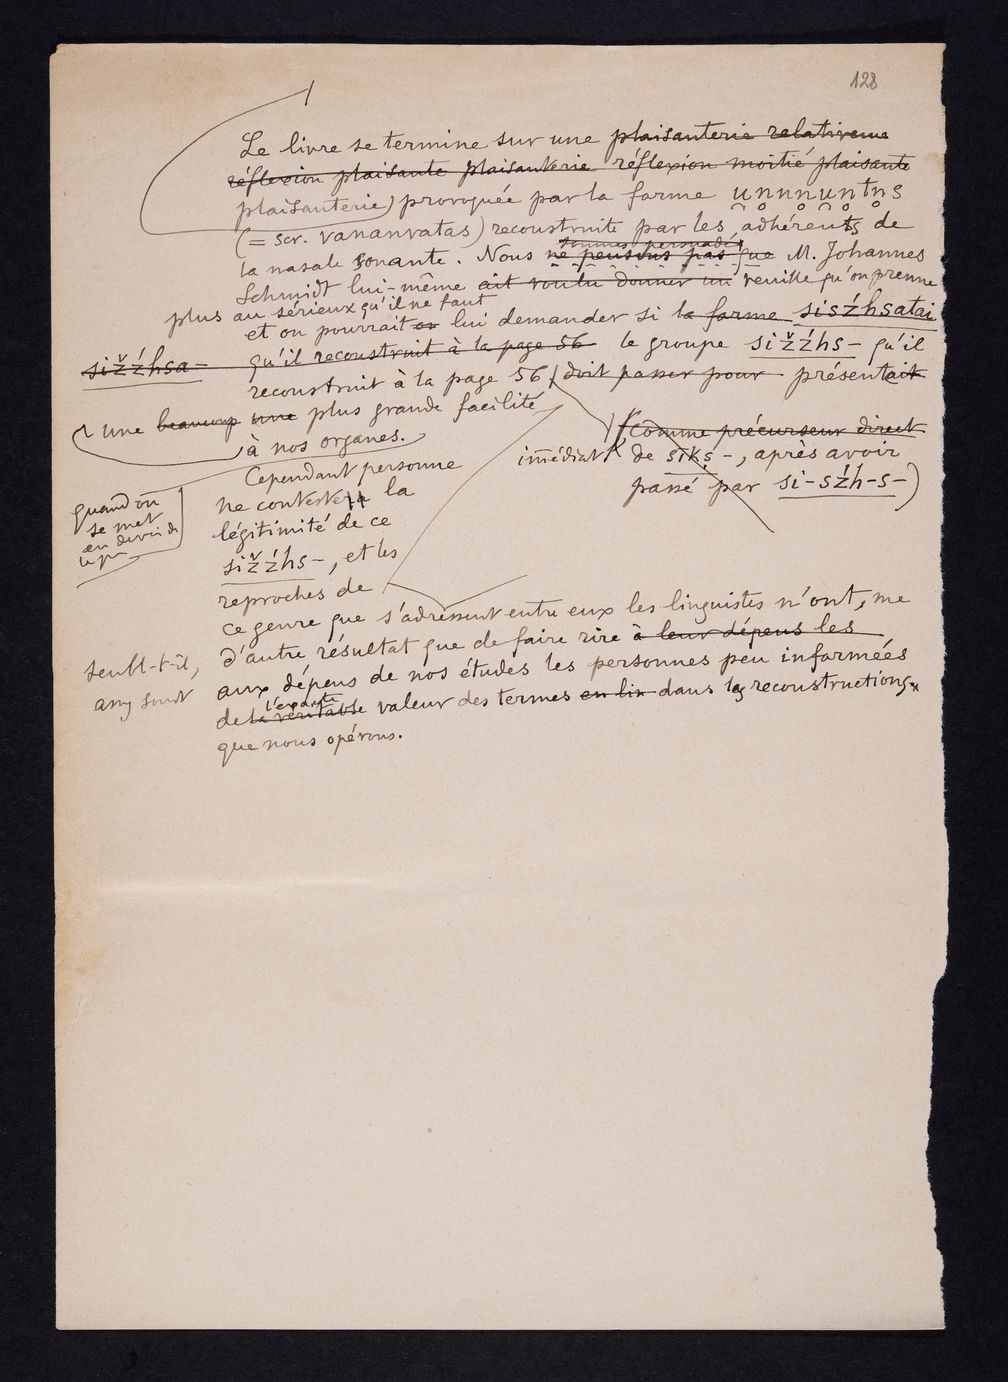 128
Le livre se termine sur une plaisanterie relativeme
réflexion plaisante plaisanterie réflexion moitié plaisante
plaisanterie) provoquée par la forme u̯n̥nn̥u̯n̥tn̥s
(= scr. vananvatas) reconstruite par les adhérents de
sommes persuadés
la nasale sonante. Nous ne pensons pas que M. Johannes
Schmidt lui-même ait voulu donner un veuille qu'on prenne
plus au sérieux qu'il ne faut
et on pourrait on lui demander si la forme sisźhsatai
sižźhsa- qu'il reconstruit à la page 56 le groupe sižźhs- qu'il
reconstruit à la page 56 doit passer pour présentait
une beaucoup une plus grande facilité
à nos organes.
(comme précurseur direct
immédiat de sīkṣ-, après avoir
passé par si-sźh-s-)
Cependant personne
ne conteste la
légitimité de ce
sižźhs-, et les
reproches de
quand on
se met
ce genre que s'adressent entre eux les linguistes n'ont, me
d'autre résultat que de faire rire à leur dépens les
sembl-t-il,
aux dépens de nos études les personnes peu informées
l'exacte
de la véritable valeur des termes en lin dans les reconstructions
que nous opérons.